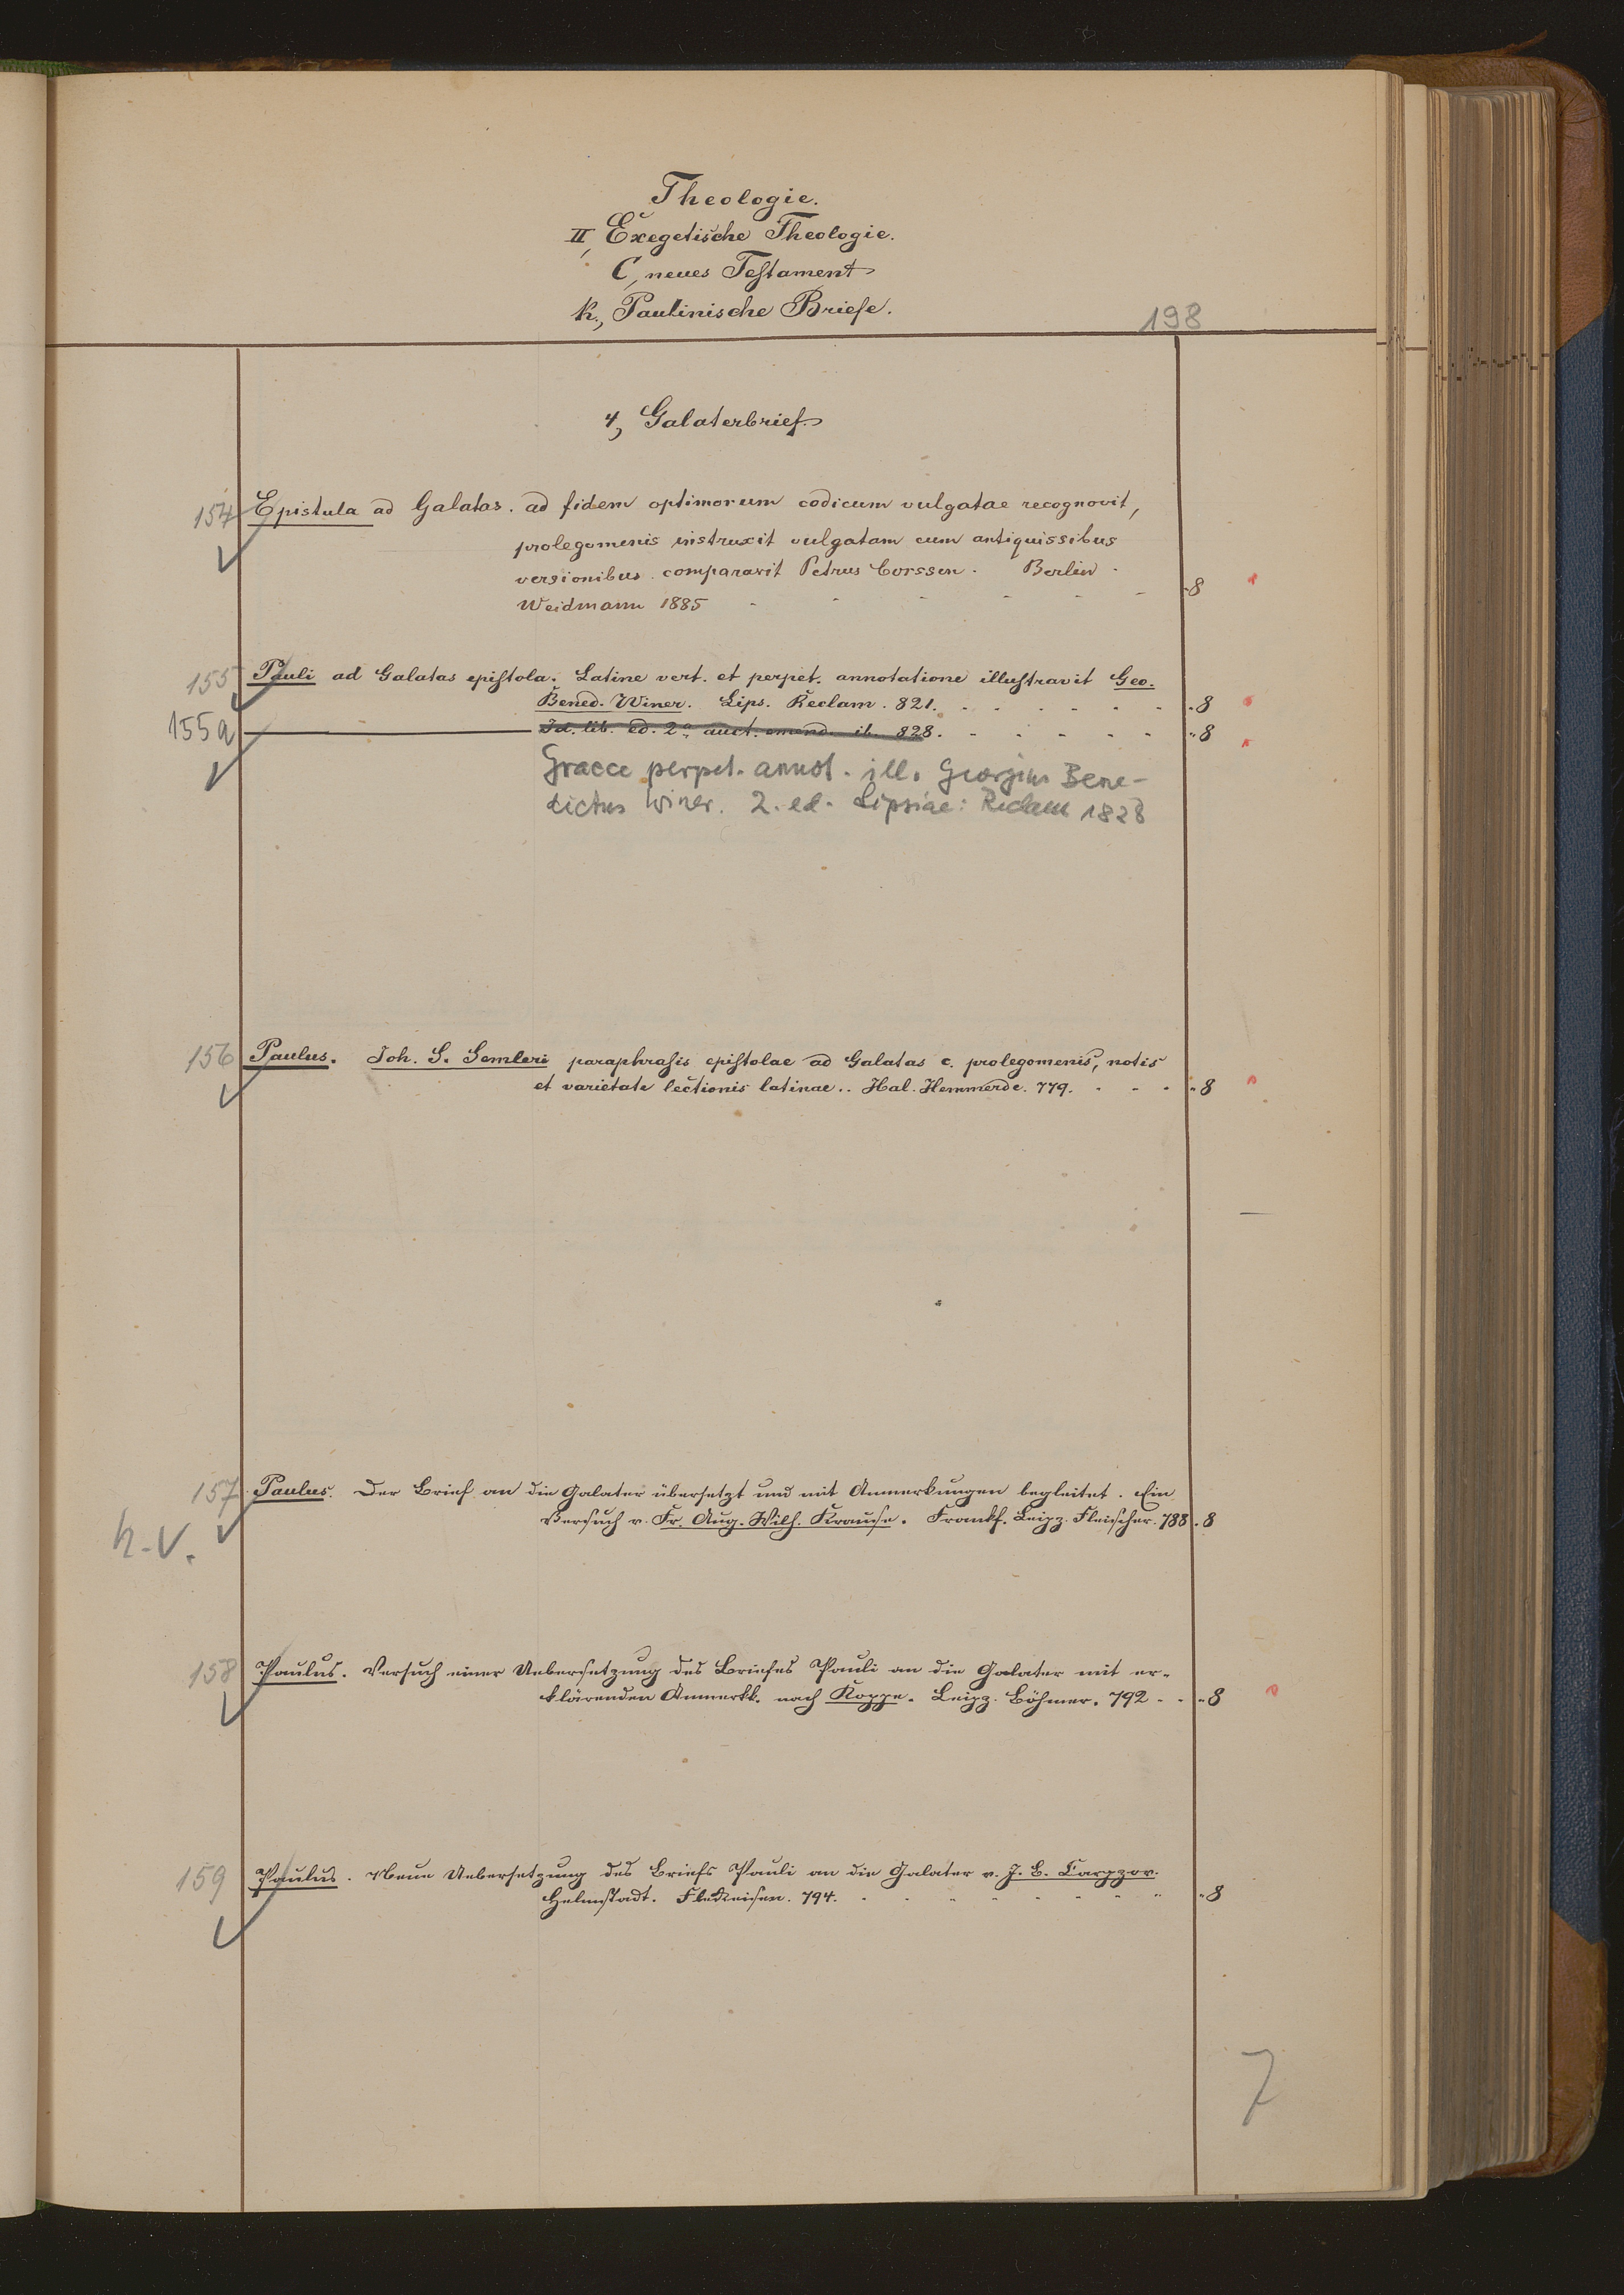 Theologie.
II, Exegetische Theologie.
C, neues Testament
k., Paulinische Briefe.
198
4, Galaterbrief.
154 Epistula ad Galatas. ad fidem optimorum codicum vulgatae recognovit,
prolegomenis instruxit vulgatam cum antiquissibus
versionibus comparavit Petrus Corssen. Berlin.
Weidmann 1885 - - - - - 8
155 Pauli ad Galatas epistola. Latine vert. et perpet. annotatione illustravit Geo.
Bened. Winer. Lips. Reclam. 821. - - - - - - 8
155a Id. lib. ed. 2a auct. emend. ib. 828. - - - - - 8
Graece perpet. annot. ill. Georgius Bene-
dictus Winer. 2. ed. Lipsiae: Reclam 1828
156 Paulus. Joh. S. Semleri paraphrasis epistolae ad Galatas c. prolegomenis, notis
et varietate lectionis latinae.. Hal. Hemmerde. 779. - - - 8
157 Paulus. Der Brief an die Galater übersetzt und mit Anmerkungen begleitet. Ein
h.V. Versuch v. Fr. Aug. Wilh. Krause. Frankf. Leipz. Fleischer. 788. 8
158 Paulus. Versuch einer Uebersetzung des Briefes Pauli an die Galater mit er-
klärenden Anmerkk. nach Koppe. Leipz. Böhmer. 792 - - 8
159 Paulus. Neue Uebersetzung des Briefs Pauli an die Galater v. J. B. Carpzov.
Helmstadt. Fleckeisen. 794. - - - - - - - - 8
7